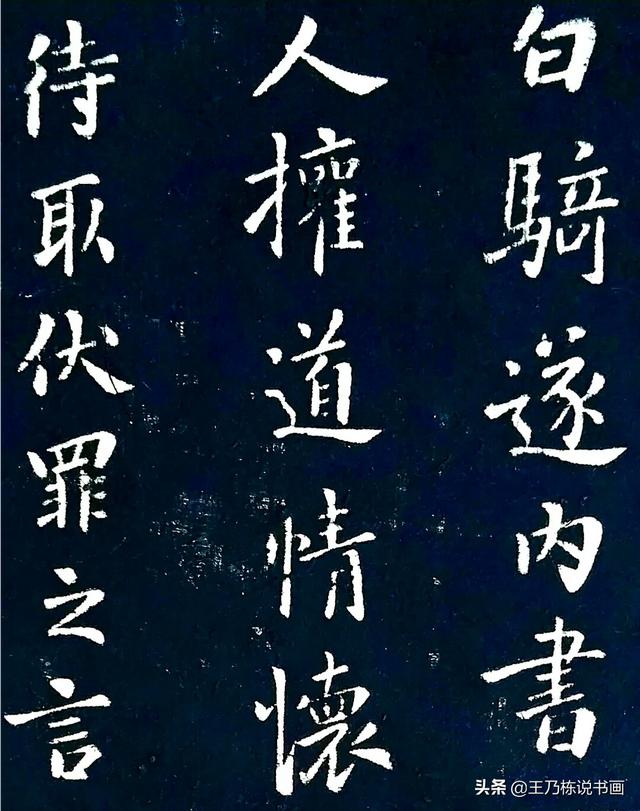 白騎遂内書
人擁道情懷
待取伏罪之言
头条@王乃栋说书画